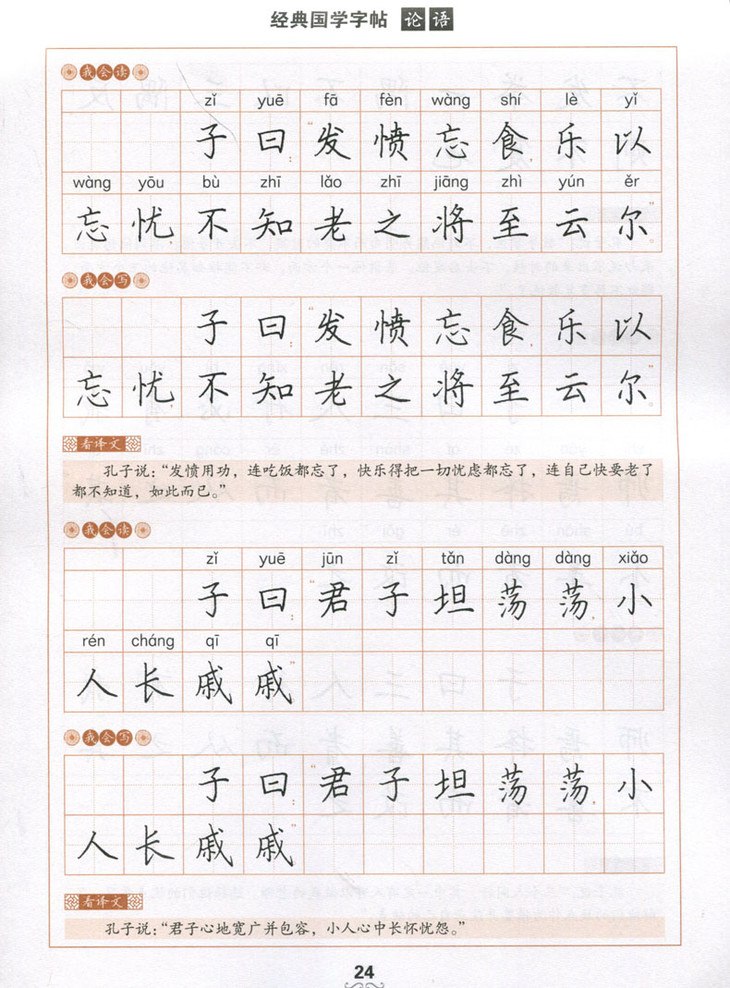 经典国学字帖 论语
我会读
zǐ yuē fā fèn wàng shí lè yǐ
子曰：“发愤忘食，乐以
wàng yōu bù zhī lǎo zhī jiāng zhì yún ěr
忘忧不知老之将至云尔”
我会写
子曰：“发愤忘食，乐以
忘忧不知老之将至云尔”。
看译文
孔子说：“发愤用功，连吃饭都忘了，快乐得把一切忧虑都忘了，连自己快要老了
都不知道，如此而已。”
我会读
zǐ yuē jūn zǐ tǎn dàng dàng xiǎo
子曰：“君子坦荡荡，小
rén cháng qī qī
人长戚戚”
我会写
子曰：“君子坦荡荡，小
人长戚戚”
看译文
孔子说：“君子心地宽广并包容，小人心中长怀忧怨。”
24